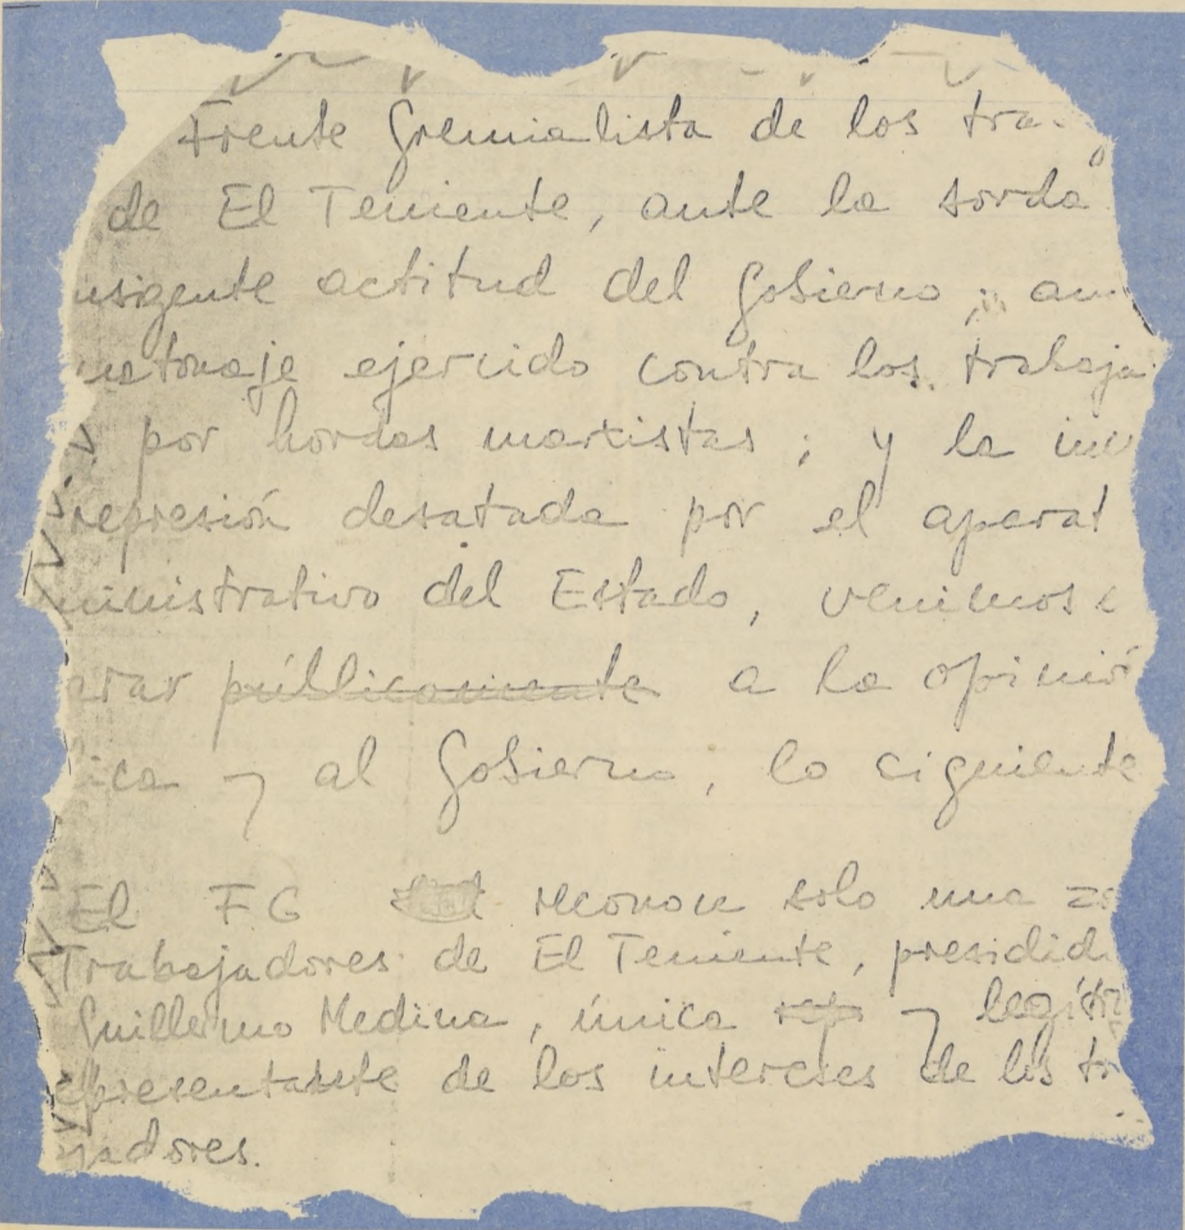 Frente Gremialista de los tra
de El Teniente, ante la sorda
nsigente actitud del Gobierno; an
ejercido contra los trabaja
por hordas marxistas; y la
represión desatada por el aparat
ministrativo del Estado, venimos
arar públicamente a la opinió
ica y al Gobierno, lo ciguiente
El FG reconoce solo una
Trabajadores de El Teniente, presidid
Guillermo Medina, única rep y legíti
epresentante de los intereses de los tr
jadores.